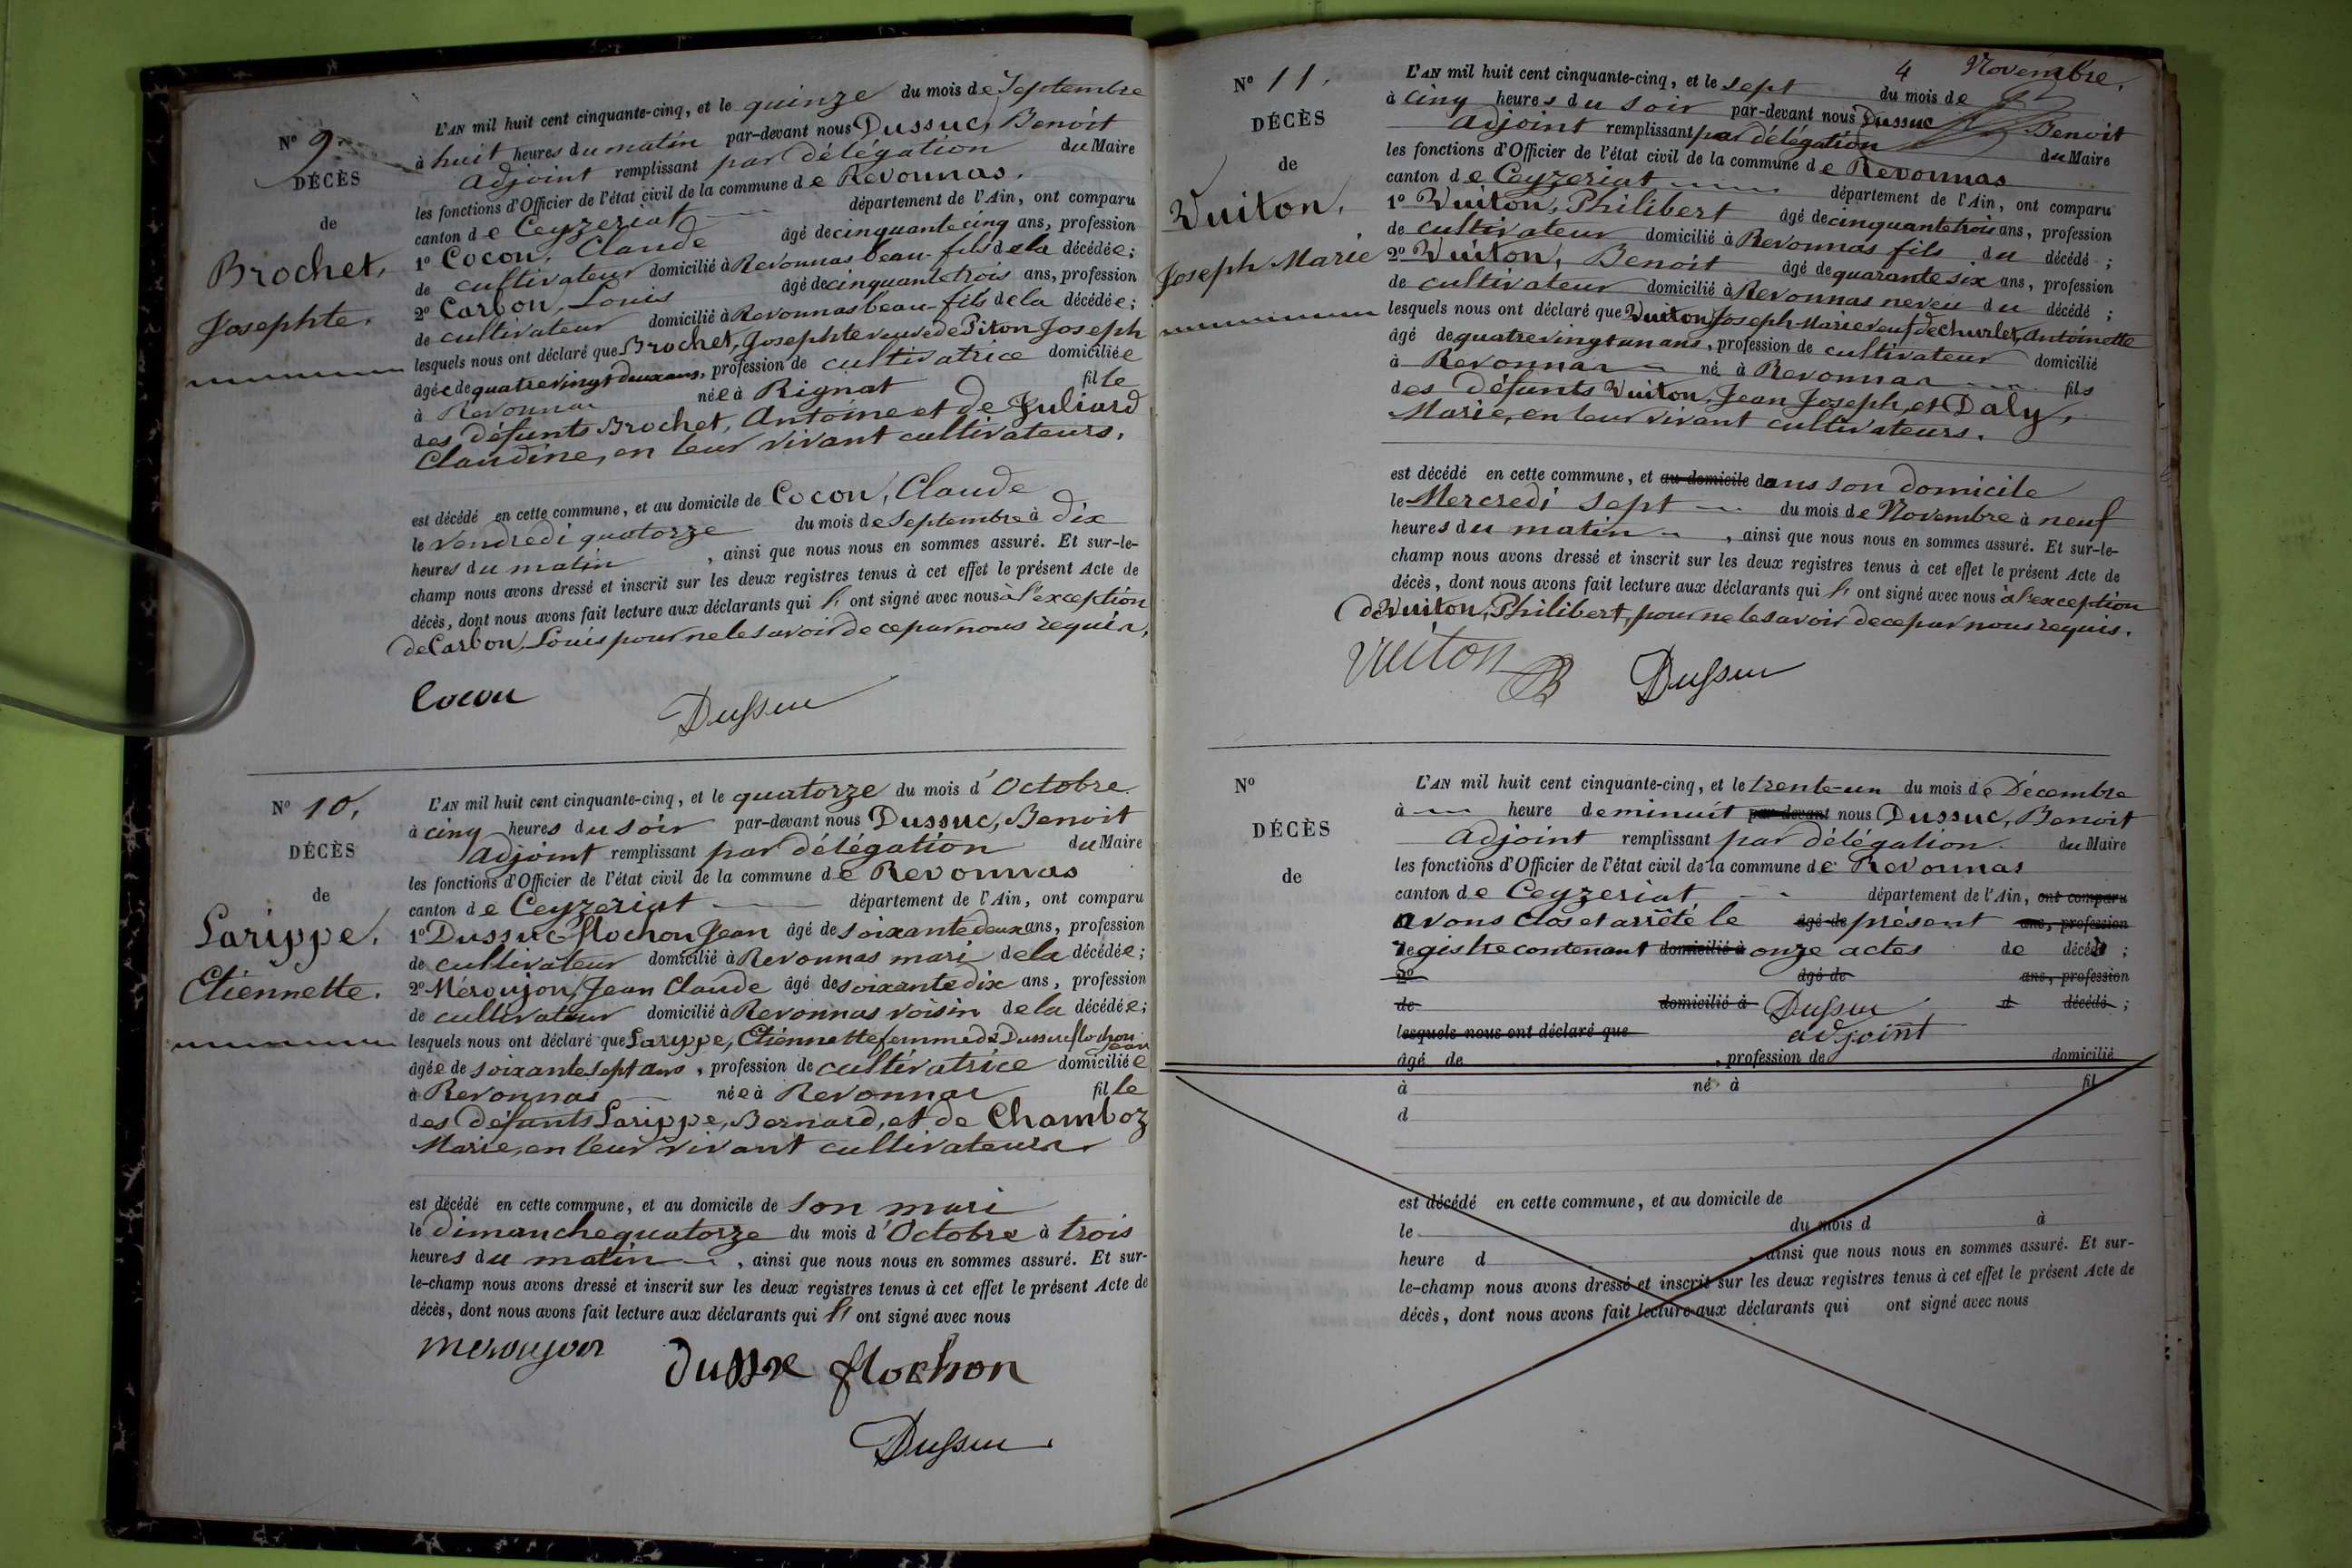 Nº 9
DÉCÈS
de
Brochet,
Josephte.
L'AN mil huit cent cinquante-cinq, et le quinze du mois de Septembre
à huit heures du matin par-devant nous Dussuc, Benoit
adjoint remplissant par délégation du Maire
les fonctions d'Officier de l'état civil de la commune de Revonnas.
canton de Ceyzeriat département de l'Ain, ont comparu
1º Cocon, Claude âgé de cinquante cinq ans, profession
de cultivateur domicilié à Revonnas beau-fils de la décédée;
2º Carbon, Louis âgé de cinquante trois ans, profession
de cultivateur domicilié à Revonnas beau-fils de la décédée;
lesquels nous ont déclaré que Brochet, Josephte veuve de Piton Joseph
âgée de quatre vingt deux ans, profession de cultivatrice domiciliée
à Revonnas née à Rignat fille
des défunts Brochet, Antoine et de Juliard
Claudine, en leur vivant cultivateurs.
est décédé en cette commune, et au domicile de Cocon, Claude
le Vendredi quatorze du mois de Septembre à dix
heures du matin, ainsi que nous nous en sommes assuré. Et sur-le-
champ nous avons dressé et inscrit sur les deux registres tenus à cet effet le présent Acte de
décès, dont nous avons fait lecture aux déclarants qui l' ont signé avec nous à l'exception
de Carbon, Louis pour ne le savoir de ce par nous requis.
Cocon Dussuc
Nº 10.
DÉCÈS
de
Larippe.
Etiennette.
L'AN mil huit cent cinquante-cinq, et le quatorze du mois d'Octobre
à cinq heures du soir par-devant nous Dussuc, Benoit
adjoint remplissant par délégation du Maire
les fonctions d'Officier de l'état civil de la commune de Revonnas
canton de Ceyzeriat département de l'Ain, ont comparu
1º Dussuc flochon Jean âgé de soixante deux ans, profession
de cultivateur domicilié à Revonnas mari de la décédée;
2º Méroujon, Jean Claude âgé de soixante dix ans, profession
de cultivateur domicilié à Revonnas voisin de la décédée;
lesquels nous ont déclaré que Larippe, Etiennette femme de Dussuc flochon
Jean
âgée de soixante sept ans, profession de cultivatrice domiciliée
à Revonnas née à Revonnas fille
des défunts Larippe, Bernard, et de Chamboz
Marie, en leur vivant cultivateurs.
est décédé en cette commune, et au domicile de son mari
le dimanche quatorze du mois d'Octobre à trois
heures du matin, ainsi que nous nous en sommes assuré. Et sur-
le-champ nous avons dressé et inscrit sur les deux registres tenus à cet effet le présent Acte de
décès, dont nous avons fait lecture aux déclarants qui l' ont signé avec nous
meroujon dussue flochon
Dussuc
4
Nº 11.
DÉCÈS
de
Vuiton,
Joseph Marie
L'AN mil huit cent cinquante-cinq, et le sept du mois de Novembre.
à cinq heures du soir par-devant nous Dussuc Benoit
adjoint remplissant par délégation du Maire
les fonctions d'Officier de l'état civil de la commune de Revonnas
canton de Ceyzeriat département de l'Ain, ont comparu
1º Vuiton, Philibert âgé de cinquante trois ans, profession
de cultivateur domicilié à Revonnas fils du décédé;
2º Vuiton, Benoit âgé de quarante six ans, profession
de cultivateur domicilié à Revonnas neveu du décédé;
lesquels nous ont déclaré que Vuiton Joseph Marie veuf de Churlet, Antoinette
âgé de quatre vingt un ans, profession de cultivateur domicilié
à Revonnas né à Revonnas fils
des défunts Vuiton, Jean Joseph, et Daly,
Marie, en leur vivant cultivateurs.
est décédé en cette commune, et au domicile dans son domicile
le Mercredi sept du mois de Novembre à neuf
heures du matin, ainsi que nous nous en sommes assuré. Et sur-le-
champ nous avons dressé et inscrit sur les deux registres tenus à cet effet le présent Acte de
décès, dont nous avons fait lecture aux déclarants qui l' ont signé avec nous à l'exception
de Vuiton, Philibert, pour ne le savoir de ce par nous requis.
Vuiton B Dussuc
Nº
DÉCÈS
de
L'AN mil huit cent cinquante-cinq, et le trente-un du mois de Décembre
à heure de minuit par-devant nous Dussuc, Benoit
adjoint remplissant par délégation du Maire
les fonctions d'Officier de l'état civil de la commune de Revonnas
canton de Ceyzeriat département de l'Ain, ont comparu
avons clos et arrêté le âgé de présent ans, profession
registre contenant domicilié à onze actes de décès;
2º âgé de ans, profession
de domicilié à Dussuc d décédé;
lesquels nous ont déclaré que adjoint
âgé de, profession de domicilié
à né à fil
d
est décédé en cette commune, et au domicile de
le du mois d à
heure d, ainsi que nous nous en sommes assuré. Et sur-
le-champ nous avons dressé et inscrit sur les deux registres tenus à cet effet le présent Acte de
décès, dont nous avons fait lecture aux déclarants qui ont signé avec nous